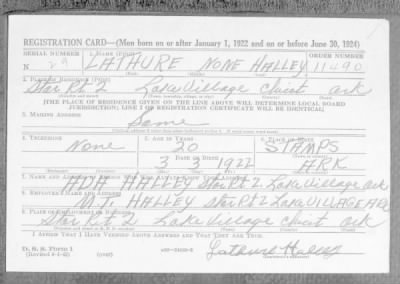 REGISTRATION CARD—(Men born on or after January 1, 1922 and on or before June 30, 1924)
SERIAL NUMBER 1. NAME (Print) ORDER NUMBER
N 29 LATHURE NONE HALLEY 11490
(First) (Middle) (Last)
2. PLACE OF RESIDENCE (Print)
Star Rt 2 Lake Village Chicot ark
[THE PLACE OF RESIDENCE GIVEN ON THE LINE ABOVE WILL DETERMINE LOCAL BOARD
JURISDICTION; LINE 2 OF REGISTRATION CERTIFICATE WILL BE IDENTICAL]
3. MAILING ADDRESS
Same
4. TELEPHONE 5. AGE IN YEARS 6. PLACE OF BIRTH
None 20 STAMPS
DATE OF BIRTH
3 1922 ARK
7. NAME AND ADDRESS OF PERSON WHO WILL ALWAYS KNOW YOUR ADDRESS
ADA HALLEY Star Rt 2. Lake Village ark
8. EMPLOYER'S NAME AND ADDRESS
M.T. HALLEY Star Rt 2 Lake VILLAGE ARK
9. PLACE OF EMPLOYMENT OR BUSINESS
Star Rt 2 Lake Village Chicot ark
I AFFIRM THAT I HAVE VERIFIED ABOVE ANSWERS AND THAT THEY ARE TRUE.
D. S. S. Form 1
(over)
Lathure Halley